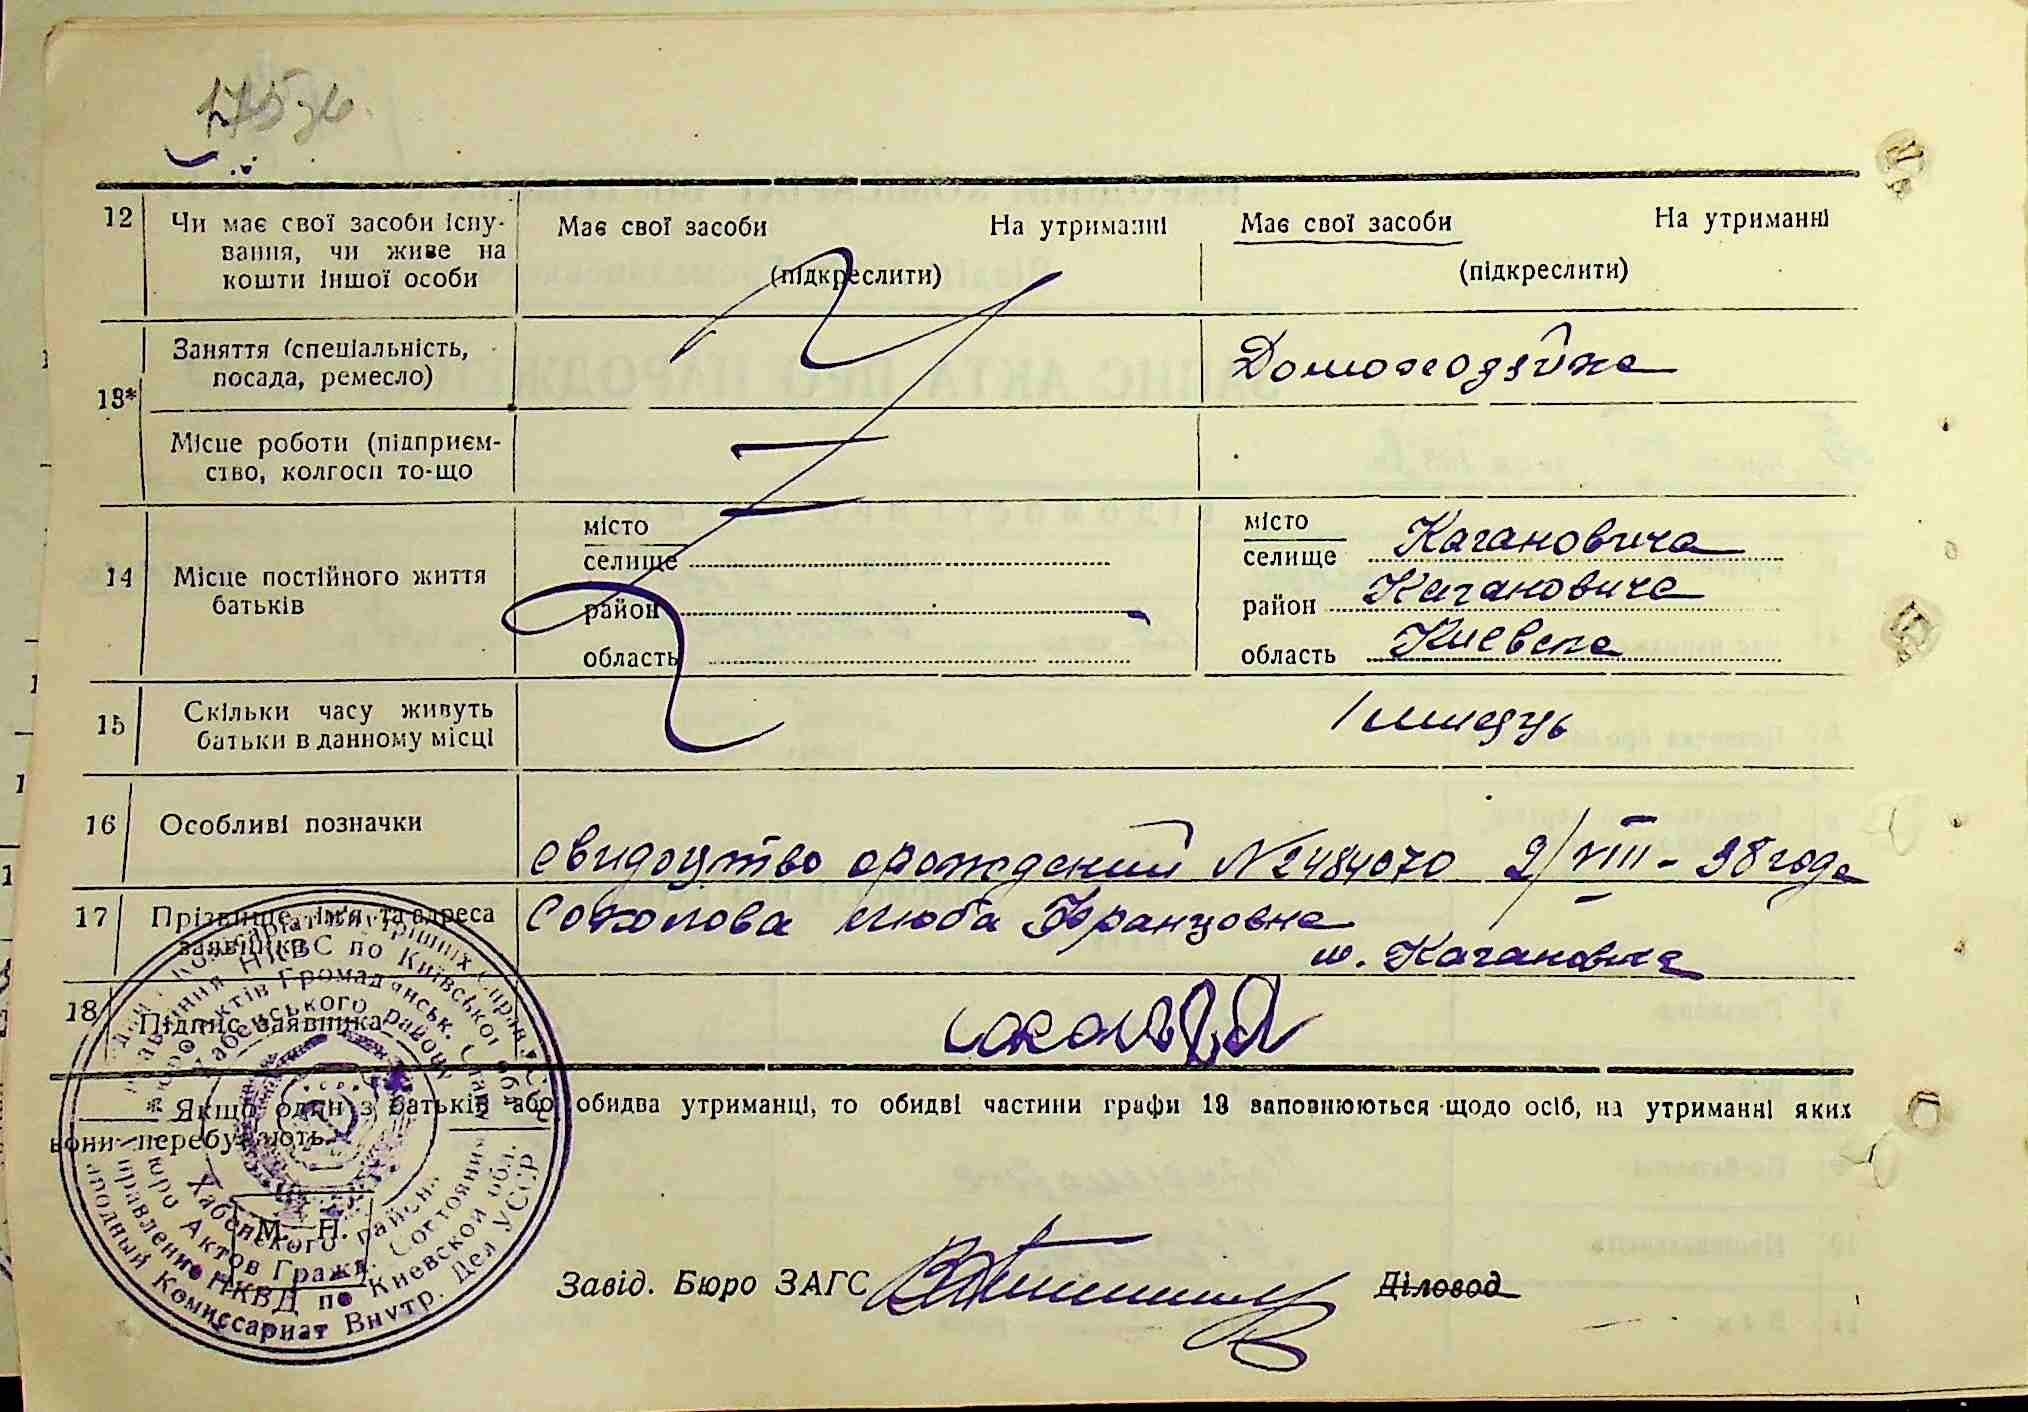 12 Чи має свої засоби існу-
вання, чи живе на
кошти іншої особи
Має свої засоби На утриманні
(підкреслити)
Має свої засоби На утриманні
(підкреслити)
13*
Заняття (спеціальність,
посада, ремесло)
Домохозяйка
Місце роботи (підприєм-
ство, колгосп то-що
14 Місце постійного життя
батьків
місто
селище
район
область
місто
селище Кагановича
район Кагановича
область Киевска
15 Скільки часу живуть
батьки в данному місці
1 місяць
16 Особливі позначки
свидоцтво орождений № 2484070 2/VIII-38 года
17 Прізвище, ім'я та адреса
заявника
Соколова Люба Францовна
м. Кагановича
18 Підпис заявника
Якщо один з батьків або обидва утриманці, то обидві частини графи 13 заповнюються щодо осіб, на утриманні яких
вони перебувають.
М. П.
Хабенського району
Хабенского района
Бюро Актов Гражд. Состояния
Управление НКВД по Киевской обл.
Народный Комиссариат Внутр. Дел УССР
Завід. Бюро ЗАГС Діловод